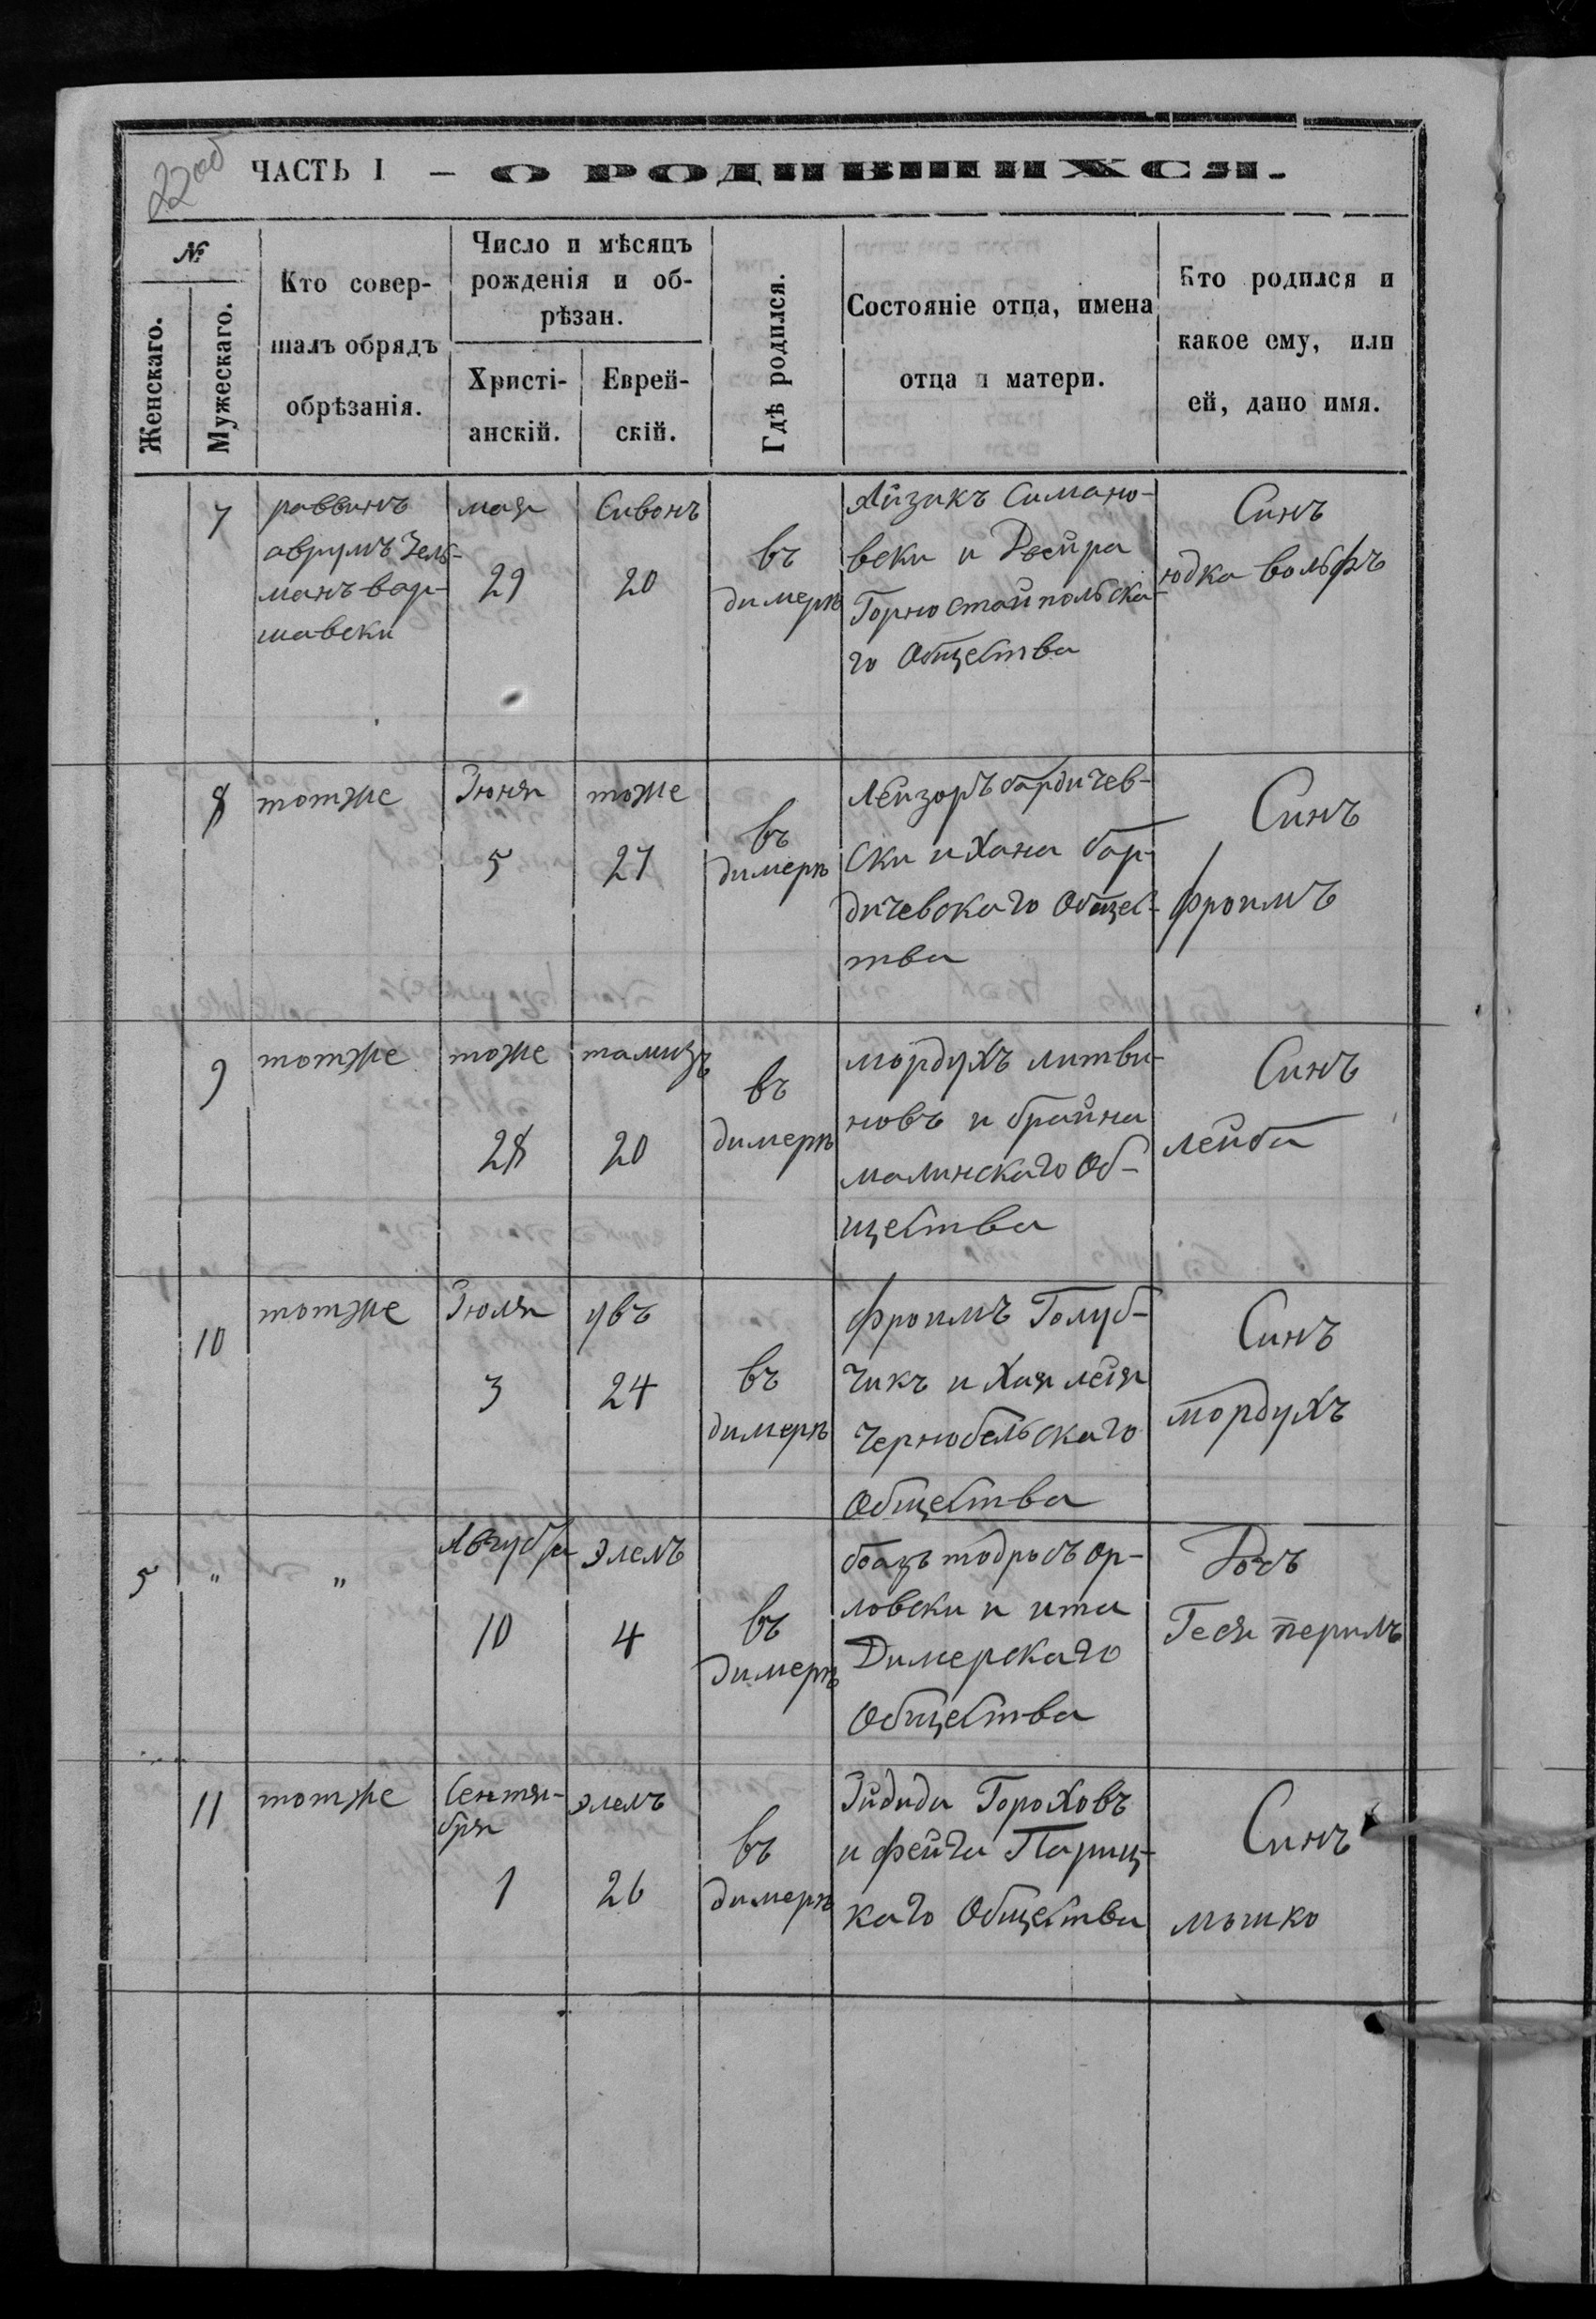 22об
ЧАСТЬ I — О РОДИВШИХСЯ.
№
Женскаго.
Мужескаго.
Кто совер-
шалъ обрядъ
обрѣзанія.
Число и мѣсяцъ
рожденія и об-
рѣзан.
Христі-
анскій.
Еврей-
скій.
Гдѣ родился.
Состояніе отца, имена
отца и матери.
Кто родился и
какое ему, или
ей, дано имя.
7
раввинъ
аврумъ Зель-
манъ вар-
шавски
мая
29
Сивонъ
20
въ
димерѣ
Айзикъ Симано-
вски и Двейра
Горностайпольска-
го Общества
Синъ
юдка вольфъ
8
тотже
Іюня
5
тоже
27
въ
димерѣ
Лейзоръ бардичев-
ски и Хана бар-
дичевскаго Общес-
тва
Синъ
фроимъ
9
тотже
тоже
28
тамузъ
20
въ
димерѣ
мордухъ литви-
новъ и брайна
малинскаго Об-
щества
Синъ
лейба
10
тотже
Іюля
3
увъ
24
въ
димерѣ
фроимъ Голуб-
чикъ и Хая лея
Чернобельскаго
Общества
Синъ
мордухъ
5
"
"
Августа
10
элелъ
4
въ
димерѣ
боазъ тодрысъ ор-
ловски и ита
Димерскаго
Общества
Дочъ
Геся перилъ
11
тотже
Сентя-
бря
1
элелъ
26
въ
димерѣ
Зйдиди Гороховъ
и фейга Париц-
каго Общества
Синъ
мошко